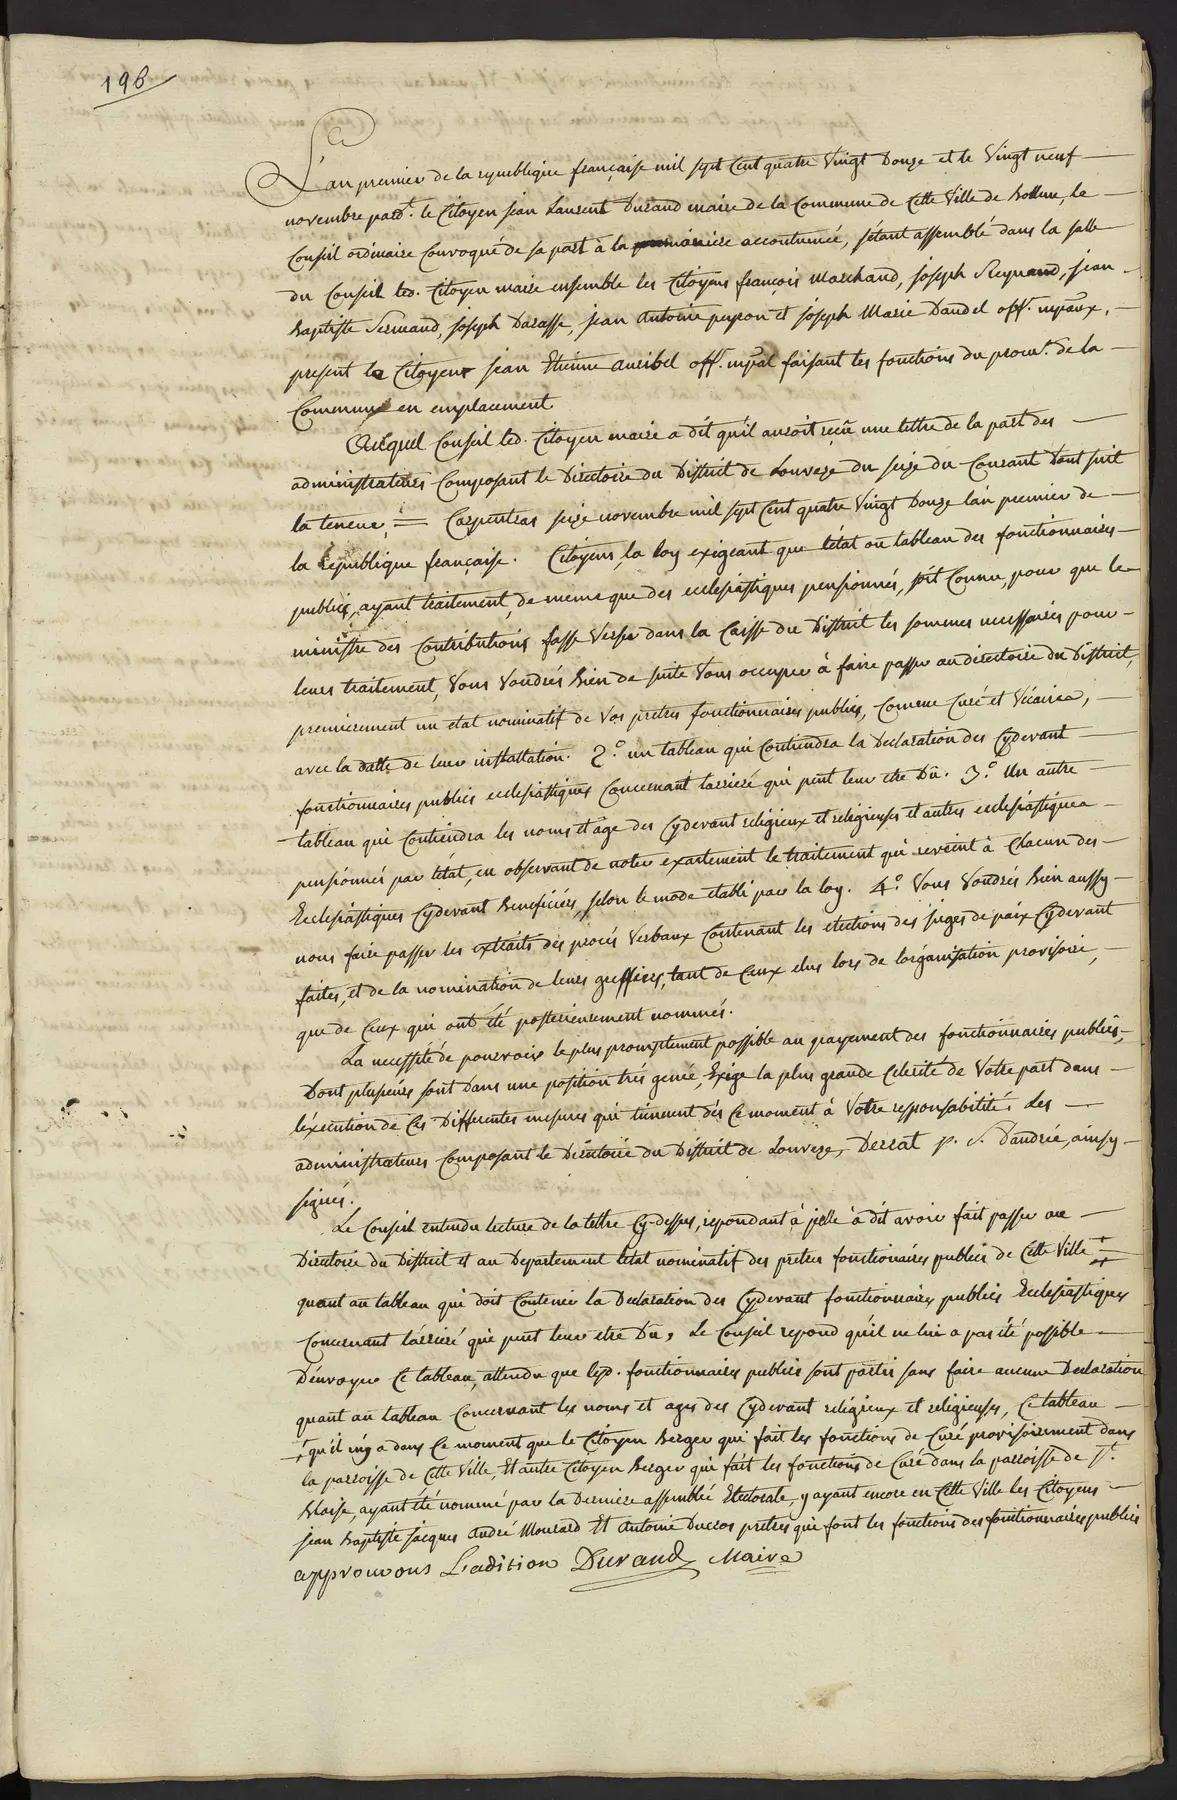 198
L'an premier de la republique française mil sept Cent quatre Vingt Douze et le Vingt neuf
novembre pard.t le Citoyen jean Laurent Durand maire de la Commune de Cette Ville de Bollene, le
Conseil ordinaire Convoqué de sa part à la maniere accoutumée, sétant assemblé dans la salle
du Conseil led. Citoyen maire ensemble les Citoyens françois Marchand, joseph Reynaud, jean
Baptiste Sermand, joseph Darasse, jean Antoine peyron et joseph Marie Daudel off. mpaux,
present le Citoyen jean Etienne auribel off. mpal faisant les fonctions du procur.r de la
Commune en emplacement
Auquel Conseil led. Citoyen maire a dit qu'il auroit reçû une lettre de la part des
administrateurs Composant le Directoire du District de Louveze du seize du Courant Dont suit
la teneur = Carpentras seize novembre mil sept Cent quatre Vingt Douze lan premier de
la republique française. Citoyens, la loy exigeant que létat ou tableau des fonctionnaires
publics, ayant traitement, de meme que des ecclesiastiques pensionnés, soit Connu, pour que le
ministre des Contributions fasse Verser dans la Caisse du District les sommes necessaires pour
leurs traitement, Vous Voudrés Bien de suite Vous occuper à faire passer au directoire du District,
premierement un etat nominatif de Vos pretres fonctionnaires publics, Comme Curé et Vicaires,
avec la datte de leur installation. 2.° un tableau qui Contiendra la Declaration des Cydevant
fonctionnaires publics ecclesiastiques Concernant larrieré qui peut leur etre Dû. 3.° Un autre
tableau qui Contiendra les noms et âge des Cydevant religieux et religieuses et autres ecclesiastiques
pensionnés par létat, en observant de noter exactement le traitement qui revient à Chacun des
Ecclesiastiques Cydevant Beneficiés, selon le mode etabli par la loy. 4.° Vous Voudrés Bien aussy
nous faire passer les extraits des procés Verbaux Contenant les elections des juges de paix Cydevant
faites, et de la nomination de leurs greffiers, tant de Ceux elus lors de lorganisation provisoire,
que de Ceux qui ont été posterieurement nommés.
La necessité de pourvoir le plus promptement possible au payement des fonctionnaires publics,
Dont plusieurs sont dans une position trés genée, Exige la plus grande Celerité de Votre part dans
léxecution de Ces Differentes mesures qui tiennent dés Ce moment à Votre responsabilité: Les
administrateurs Composant le Directoire du District de Louveze, Derrat p. s. Daudrée, ainsy
signés.
Le Conseil entendu lecture de la lettre Cy-dessus, repondant à jcelle à dit avoir fait passer au
Directoire du District et au Departement letat nominatif des pretres fonctionaires publics de Cette Ville
quant au tableau qui doit Contenir la Declaration des Cydevant fonctionnaires publics Ecclesiastiques
Concernant lárrieré qui peut leur etre Dû, Le Conseil repond qu'il ne lui a pas été possible
Dénvoyer Ce tableau, attendu que lesd. fonctionnaires publics sont partis sans faire aucune Declaration
quant au tableau Concernant les noms et ages des Cydevant religieux et religieuses, Ce tableau
qu'il n'y a dans Ce moment que le Citoyen Berger qui fait les fonctions de Curé provisoirement dans
la parroisse de Cette Ville, Et autre Citoyen Berger qui fait les fonctions de Curé dans la parroisse de S.t
Blaise, ayant été nommé par la Derniere assemblée Electorale, y ayant encore en Cette Ville les Citoyens
jean Baptiste jacques André Mourard Et Antoine Ducros pretres qui font les fonctions des fonctionnaires publics
approuvons L'adition Durand Maire